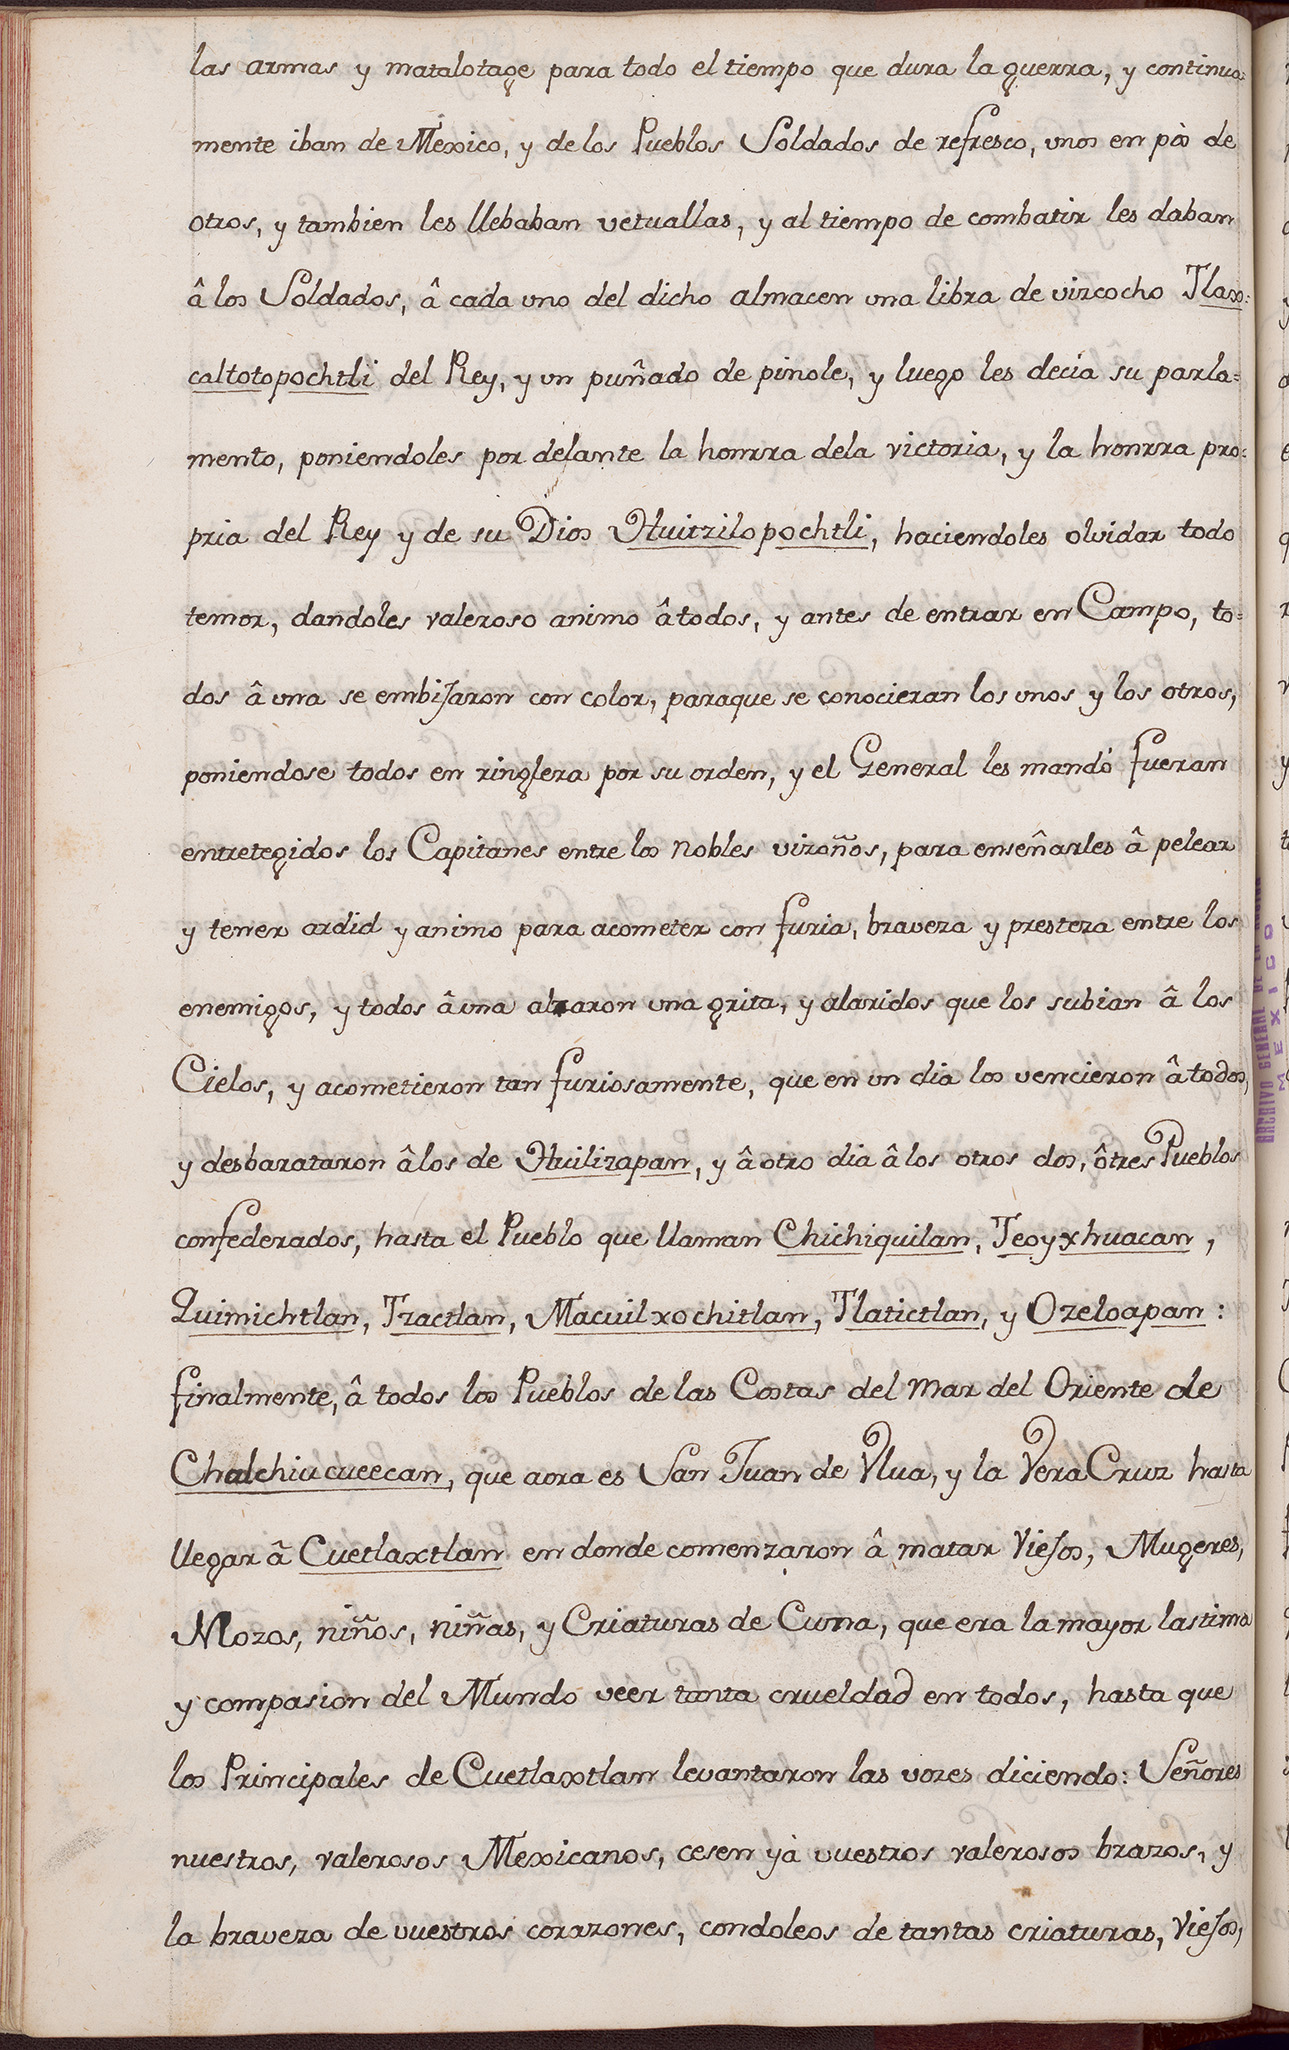 las armas y matalotage para todo el tiempo que dura la guerra, y continua=
mente iban de Mexico, y de los Pueblos Soldados de refresco, unos en pòs de
otros, y tambien les llebaban vetuallas, y al tiempo de combatir les daban
â los Soldados, â cada uno del dicho almacen una libra de vizcocho Tlax=
caltotopochtli del Rey, y un puñado de pinole, y luego les decia su parla=
mento, poniendoles por delante la honrra dela victoria, y la honrra pro=
pria del Rey y de su Dios Huitzilopochtli, haciendoles olvidar todo
temor, dandoles valeroso animo â todos, y antes de entrar en Campo, to=
dos â una se embijaron con color, paraque se conocieran los unos y los otros,
poniendose todos en ringlera por su orden, y el General les mandó fueran
entretegidos los Capitanes entre los nobles vizoños, para enseñarles â pelear
y tener ardid y animo para acometer con furia, braveza y presteza entre los
enemigos, y todos â una alzaron una grita, y alaridos que los subian â los
Cielos, y acometieron tan furiosamente, que en un dia los vencieron â todos,
y desbarataron â los de Huilizapan, y â otro dia â los otros dos, ô tres Pueblos
confederados, hasta el Pueblo que llaman Chichiquilan, Teoyxhuacan,
Quimichtlan, Tzactlan, Macuilxochitlan, Tlatictlan, y Ozeloapan:
finalmente, â todos los Pueblos de las Costas del Mar del Oriente de
Chalchiucueecan, que aora es San Juan de Vlua, y la Vera Cruz hasta
llegar â Cuetlaxtlan en donde comenzaron â matar Viejos, Mugeres,
Mozos, niños, niñas, y Criaturas de Cuna, que era la mayor lastima
y compasion del Mundo veer tanta crueldad en todos, hasta que
los Principales de Cuetlaxtlan levantaron las vozes diciendo: Señores
nuestros, valerosos Mexicanos, cesen yà vuestros valerosos brazos, y
la braveza de vuestros corazones, condoleos de tantas criaturas, Viejos,
ARCHIVO GENERAL DE LA
MEXICO